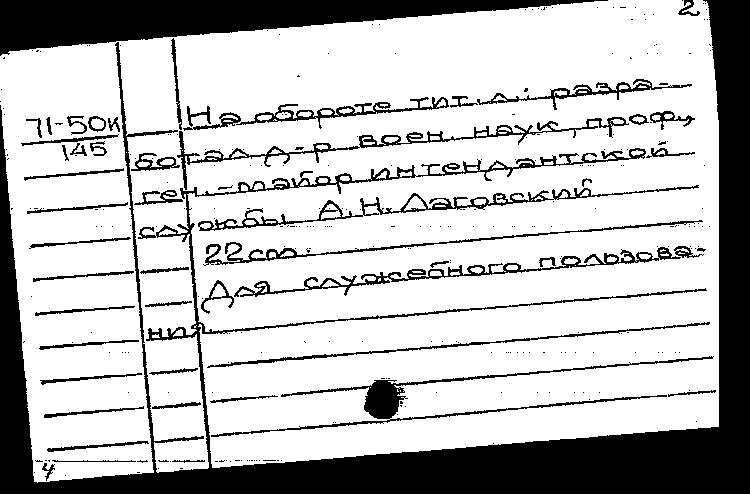 2
71-50к
145
На обороте тит. л.: разра-
ботал д-р воен. наук, проф.,
ген.-майор интендантской
службы А.Н. Лаговский
22 см.
Для служебного пользова-
ния.
4